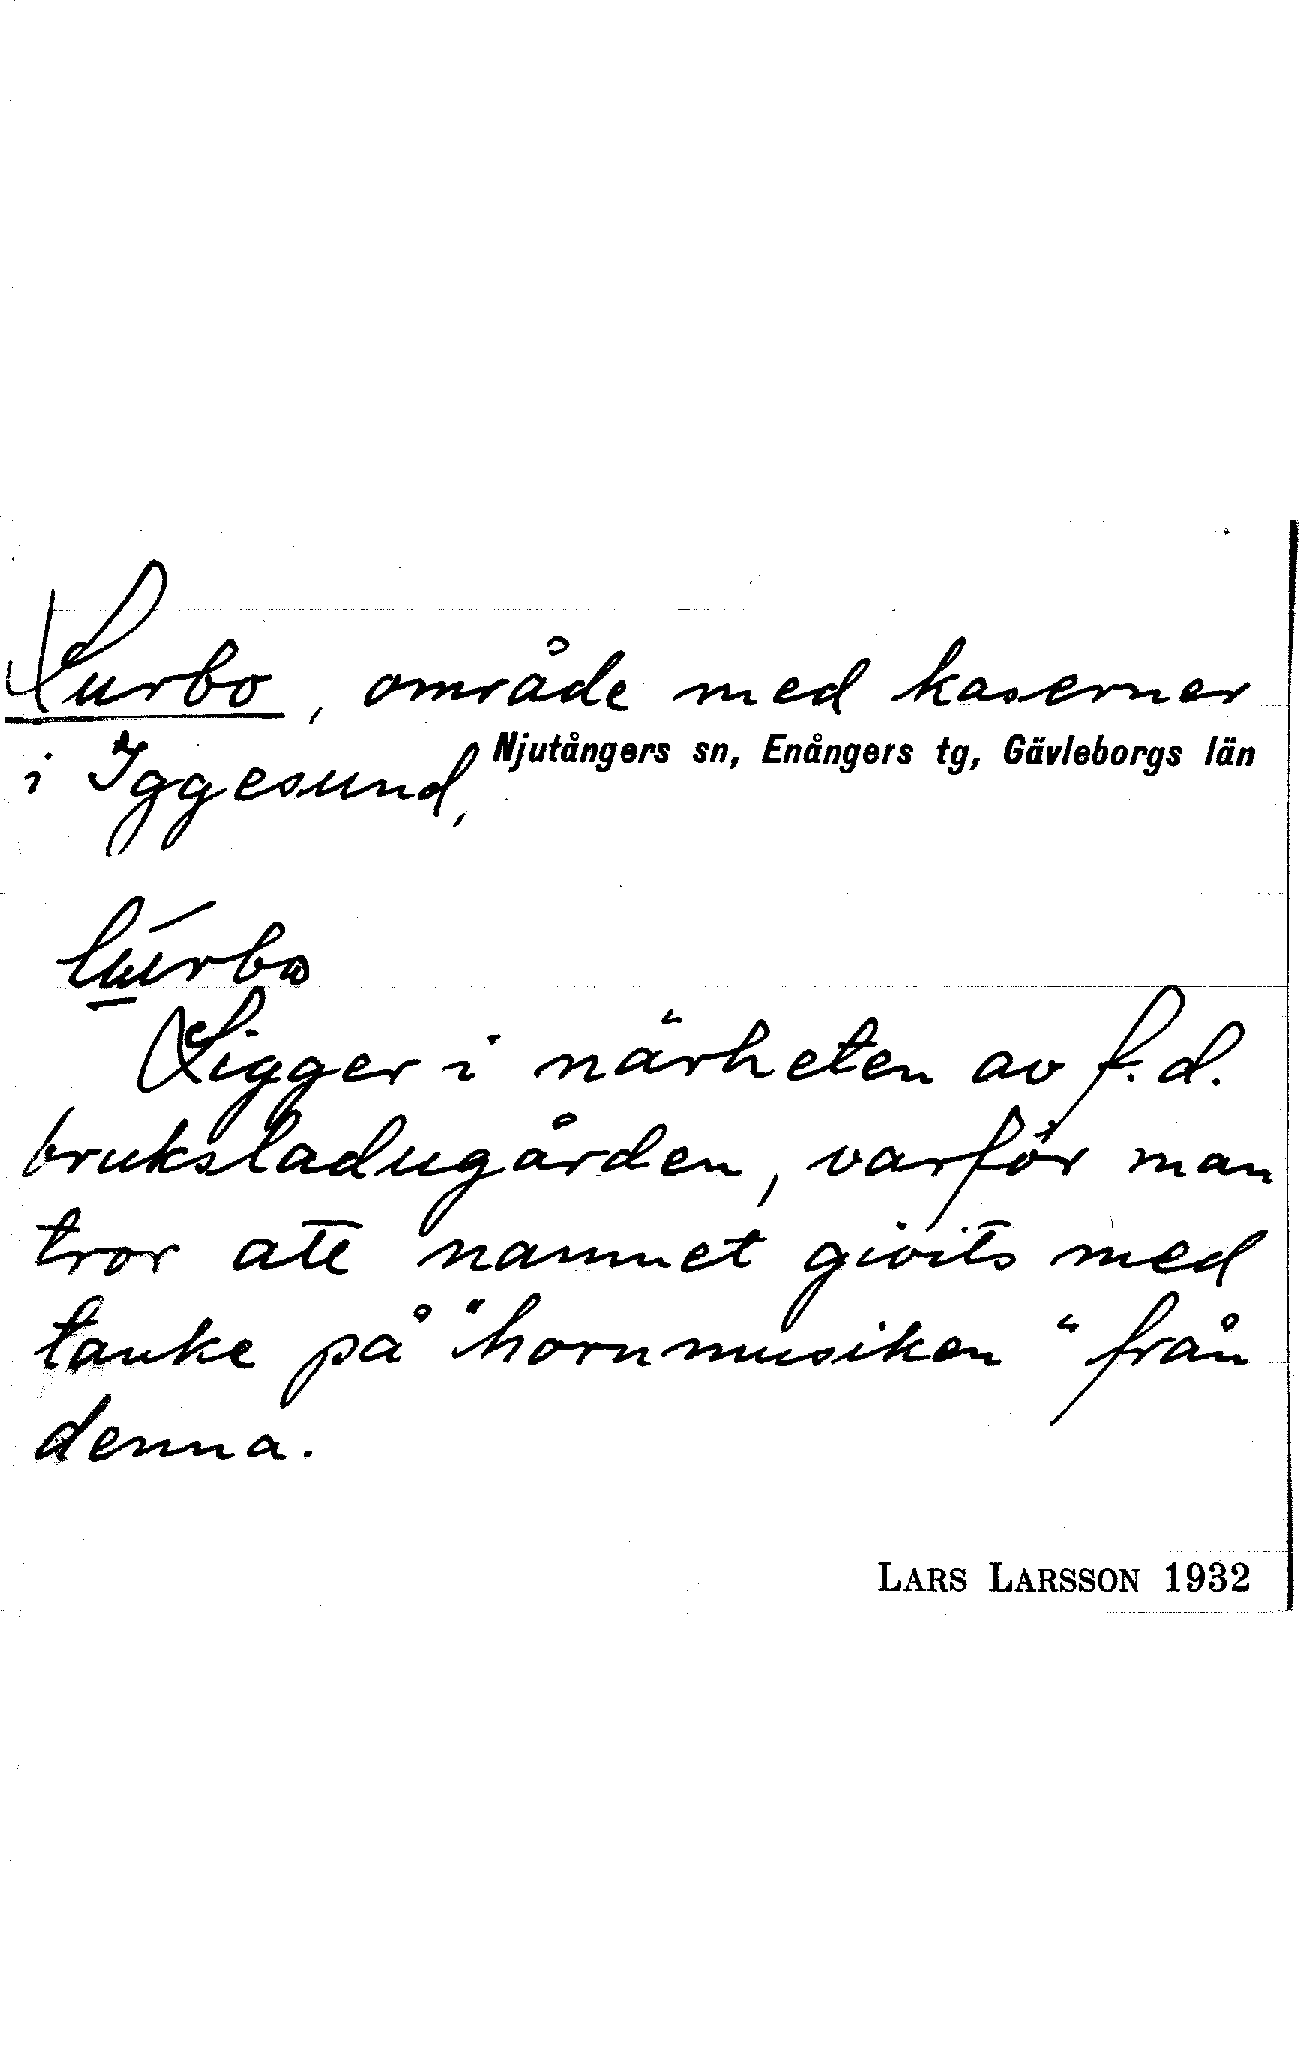 Lurbo, område med kaserner
i Iggesund, Njutångers sn, Enångers tg, Gävleborgs län
Ligger i närheten av f.d.
bruksladugården, varför man
tror att namnet givits med
tanke på "hornmusiken" från
denna.
LARS LARSSON 1932